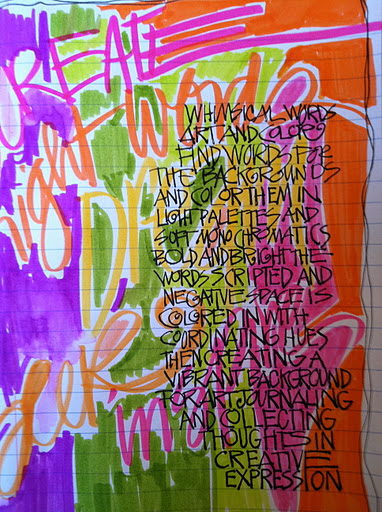 CREATE
light words
WHIMSICAL WORDS
ART AND COLOR
FIND WORDS FOR
THE BACKGROUNDS
AND COLOR THEM IN
LIGHT PALETTES AND
SOFT MONOCHROMATICS
BOLD AND BRIGHT THE
WORDS SCRIPTED AND
NEGATIVE SPACE IS
COLORED IN WITH
COORDINATING HUES
THEN CREATING A
VIBRANT BACKGROUND
FOR ART JOURNALING
AND COLLECTING
THOUGHTS IN
CREATIVE
EXPRESSION